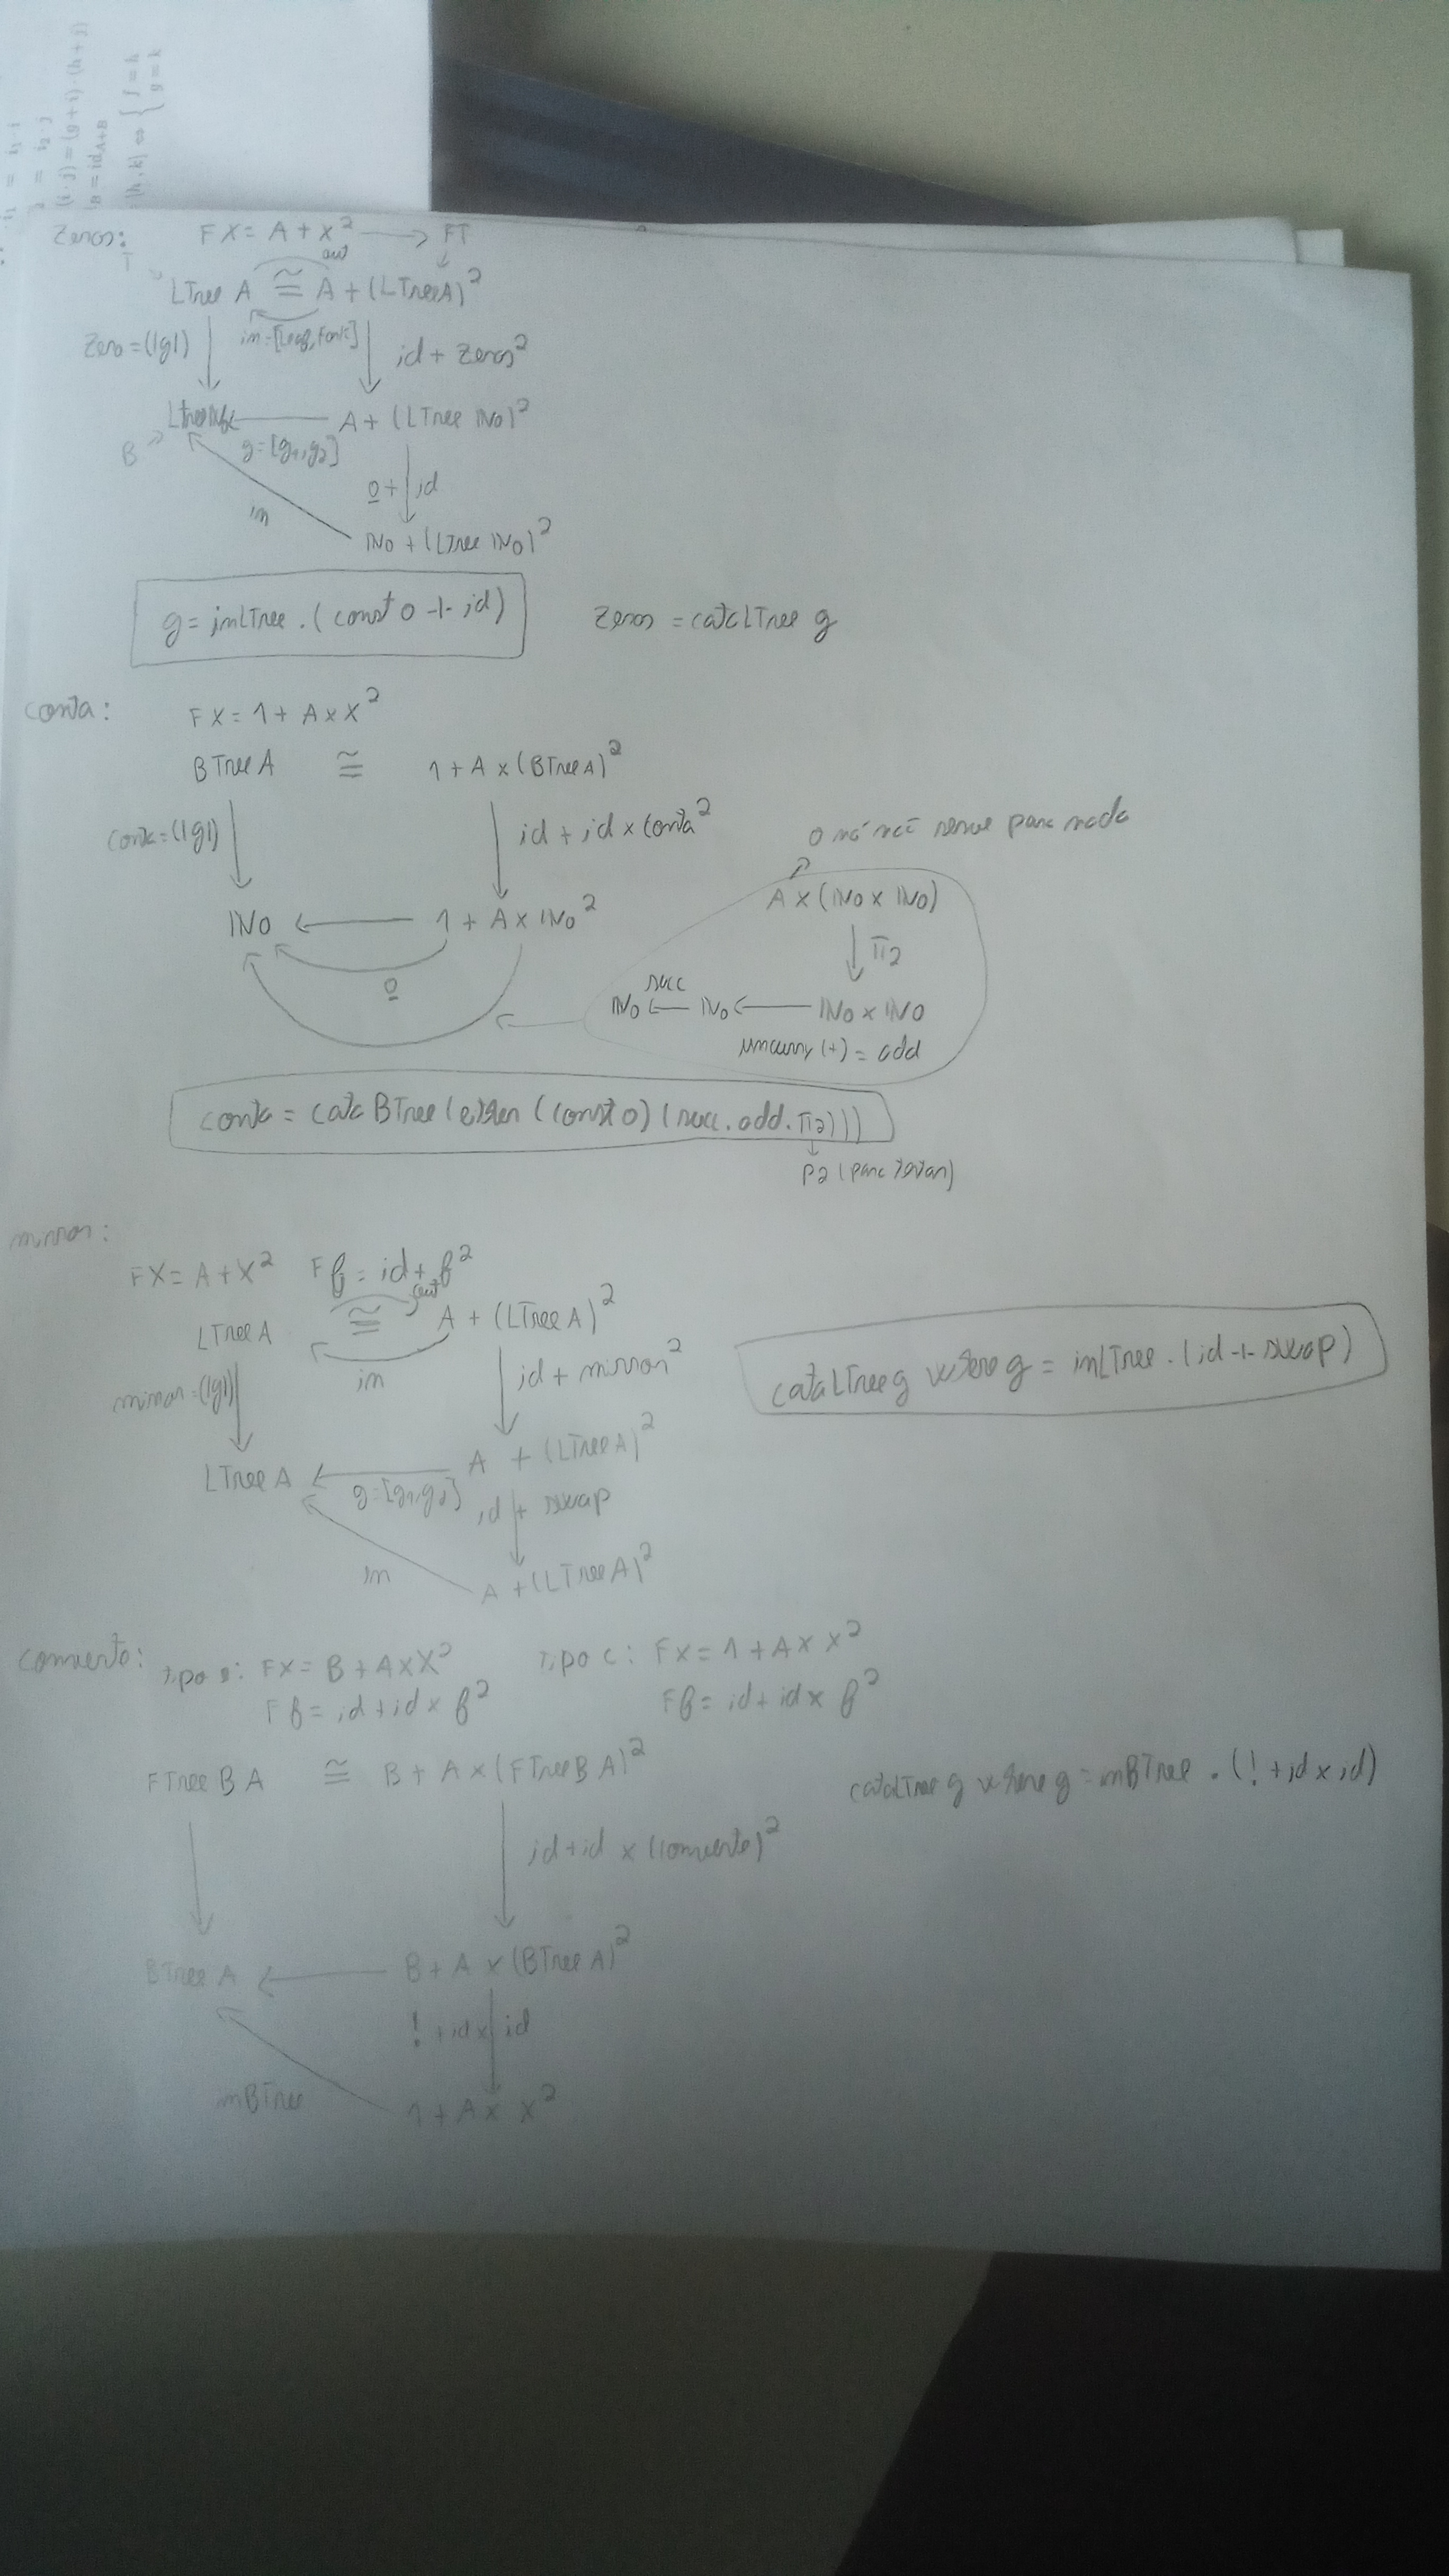 i₁ = i₁ · i
= i₂ · j
(i · j) = (g + i) · (h + j)
B = id A+B
[h, k] ⇔ { f = h
g = k
Zeros: FX = A + X² → FT
T out
LTree A ≅ A + (LTree A)²
Zero = (|g|) in = [Leaf, Fork] id + Zeros²
A + (LTree ℕ₀)²
B g = [g₁, g₂]
0 + id
in
ℕ₀ + (LTree ℕ₀)²
g = inLTree . (const 0 -|- id) Zeros = cataLTree g
conta: FX = 1 + A × X²
BTree A ≅ 1 + A × (BTree A)²
conta = (|g|) id + id × conta²
o nó não serve para nada
A × (ℕ₀ × ℕ₀)
ℕ₀ ← 1 + A × ℕ₀²
π₂
0
succ
ℕ₀ ← ℕ₀ ← ℕ₀ × ℕ₀
uncurry (+) = add
conta = cataBTree (either (const 0) (succ . add . π₂)))
P2 (para )
mirror:
FX = A + X² Ff = id + f²
out
LTree A ≅ A + (LTree A)²
mirror = (|g|) in id + mirror²
cataLTree g where g = inLTree . (id -|- swap)
LTree A ← A + (LTree A)²
g = [g₁, g₂] id + swap
in
A + (LTree A)²
converte: tipo FX = B + A × X² tipo c: FX = 1 + A × X²
Ff = id + id × f² Ff = id + id × f²
FTree B A ≅ B + A × (FTree B A)²
cataLTree g where g = inBTree . (! + id × id)
id + id × (converte)²
BTree A ← B + A × (BTree A)²
! + id × id
inBTree
1 + A × X²